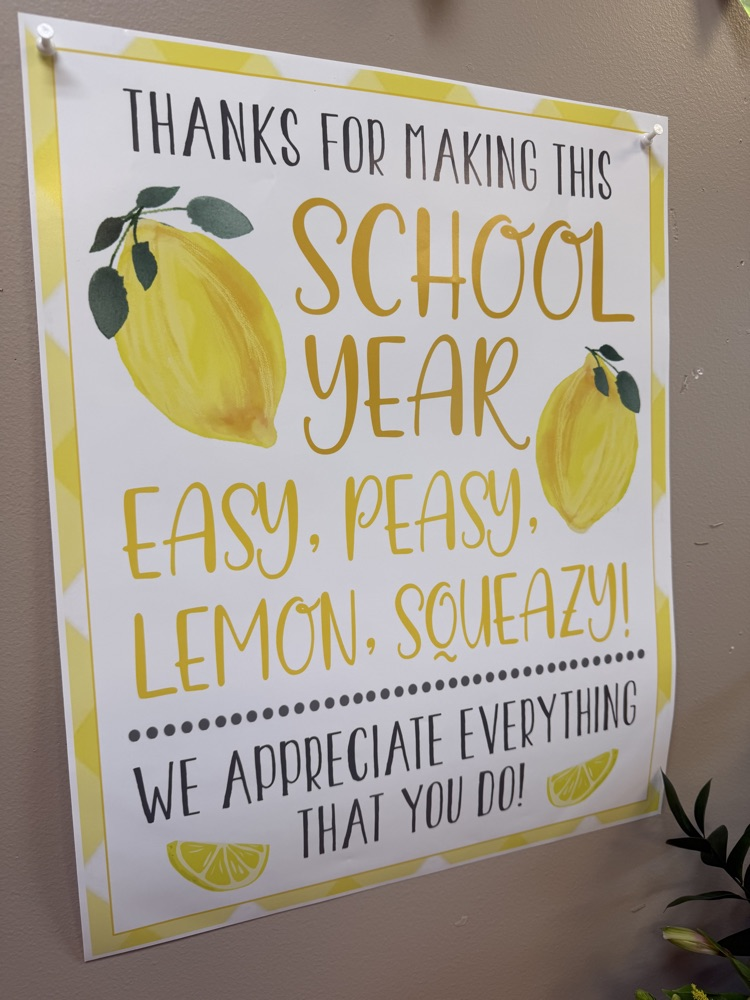 THANKS FOR MAKING THIS
SCHOOL
YEAR
EASY, PEASY,
LEMON, SQUEAZY!
WE APPRECIATE EVERYTHING
THAT YOU DO!